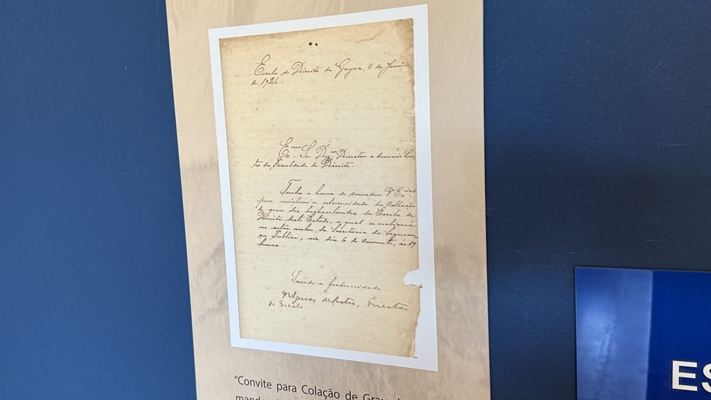 Escola de Direito de Goyaz, 11 de Janeiro
de 1926.
Exmo. Sr. Director e demais Len-
tes da Faculdade de Direito.
Tenho a honra de convidar V. Excias
para assistirem a solemnidade da Collação
de grau dos bacharelandos da Escola de
Direito deste Estado, a qual se realizará
no salão nobre da Secretaria da Seguran-
ça Publica, no dia 6 do corrente, ás 19
horas.
Saúde e fraternidade.
Director
da Escola
"Convite para Colação de Grau
ES